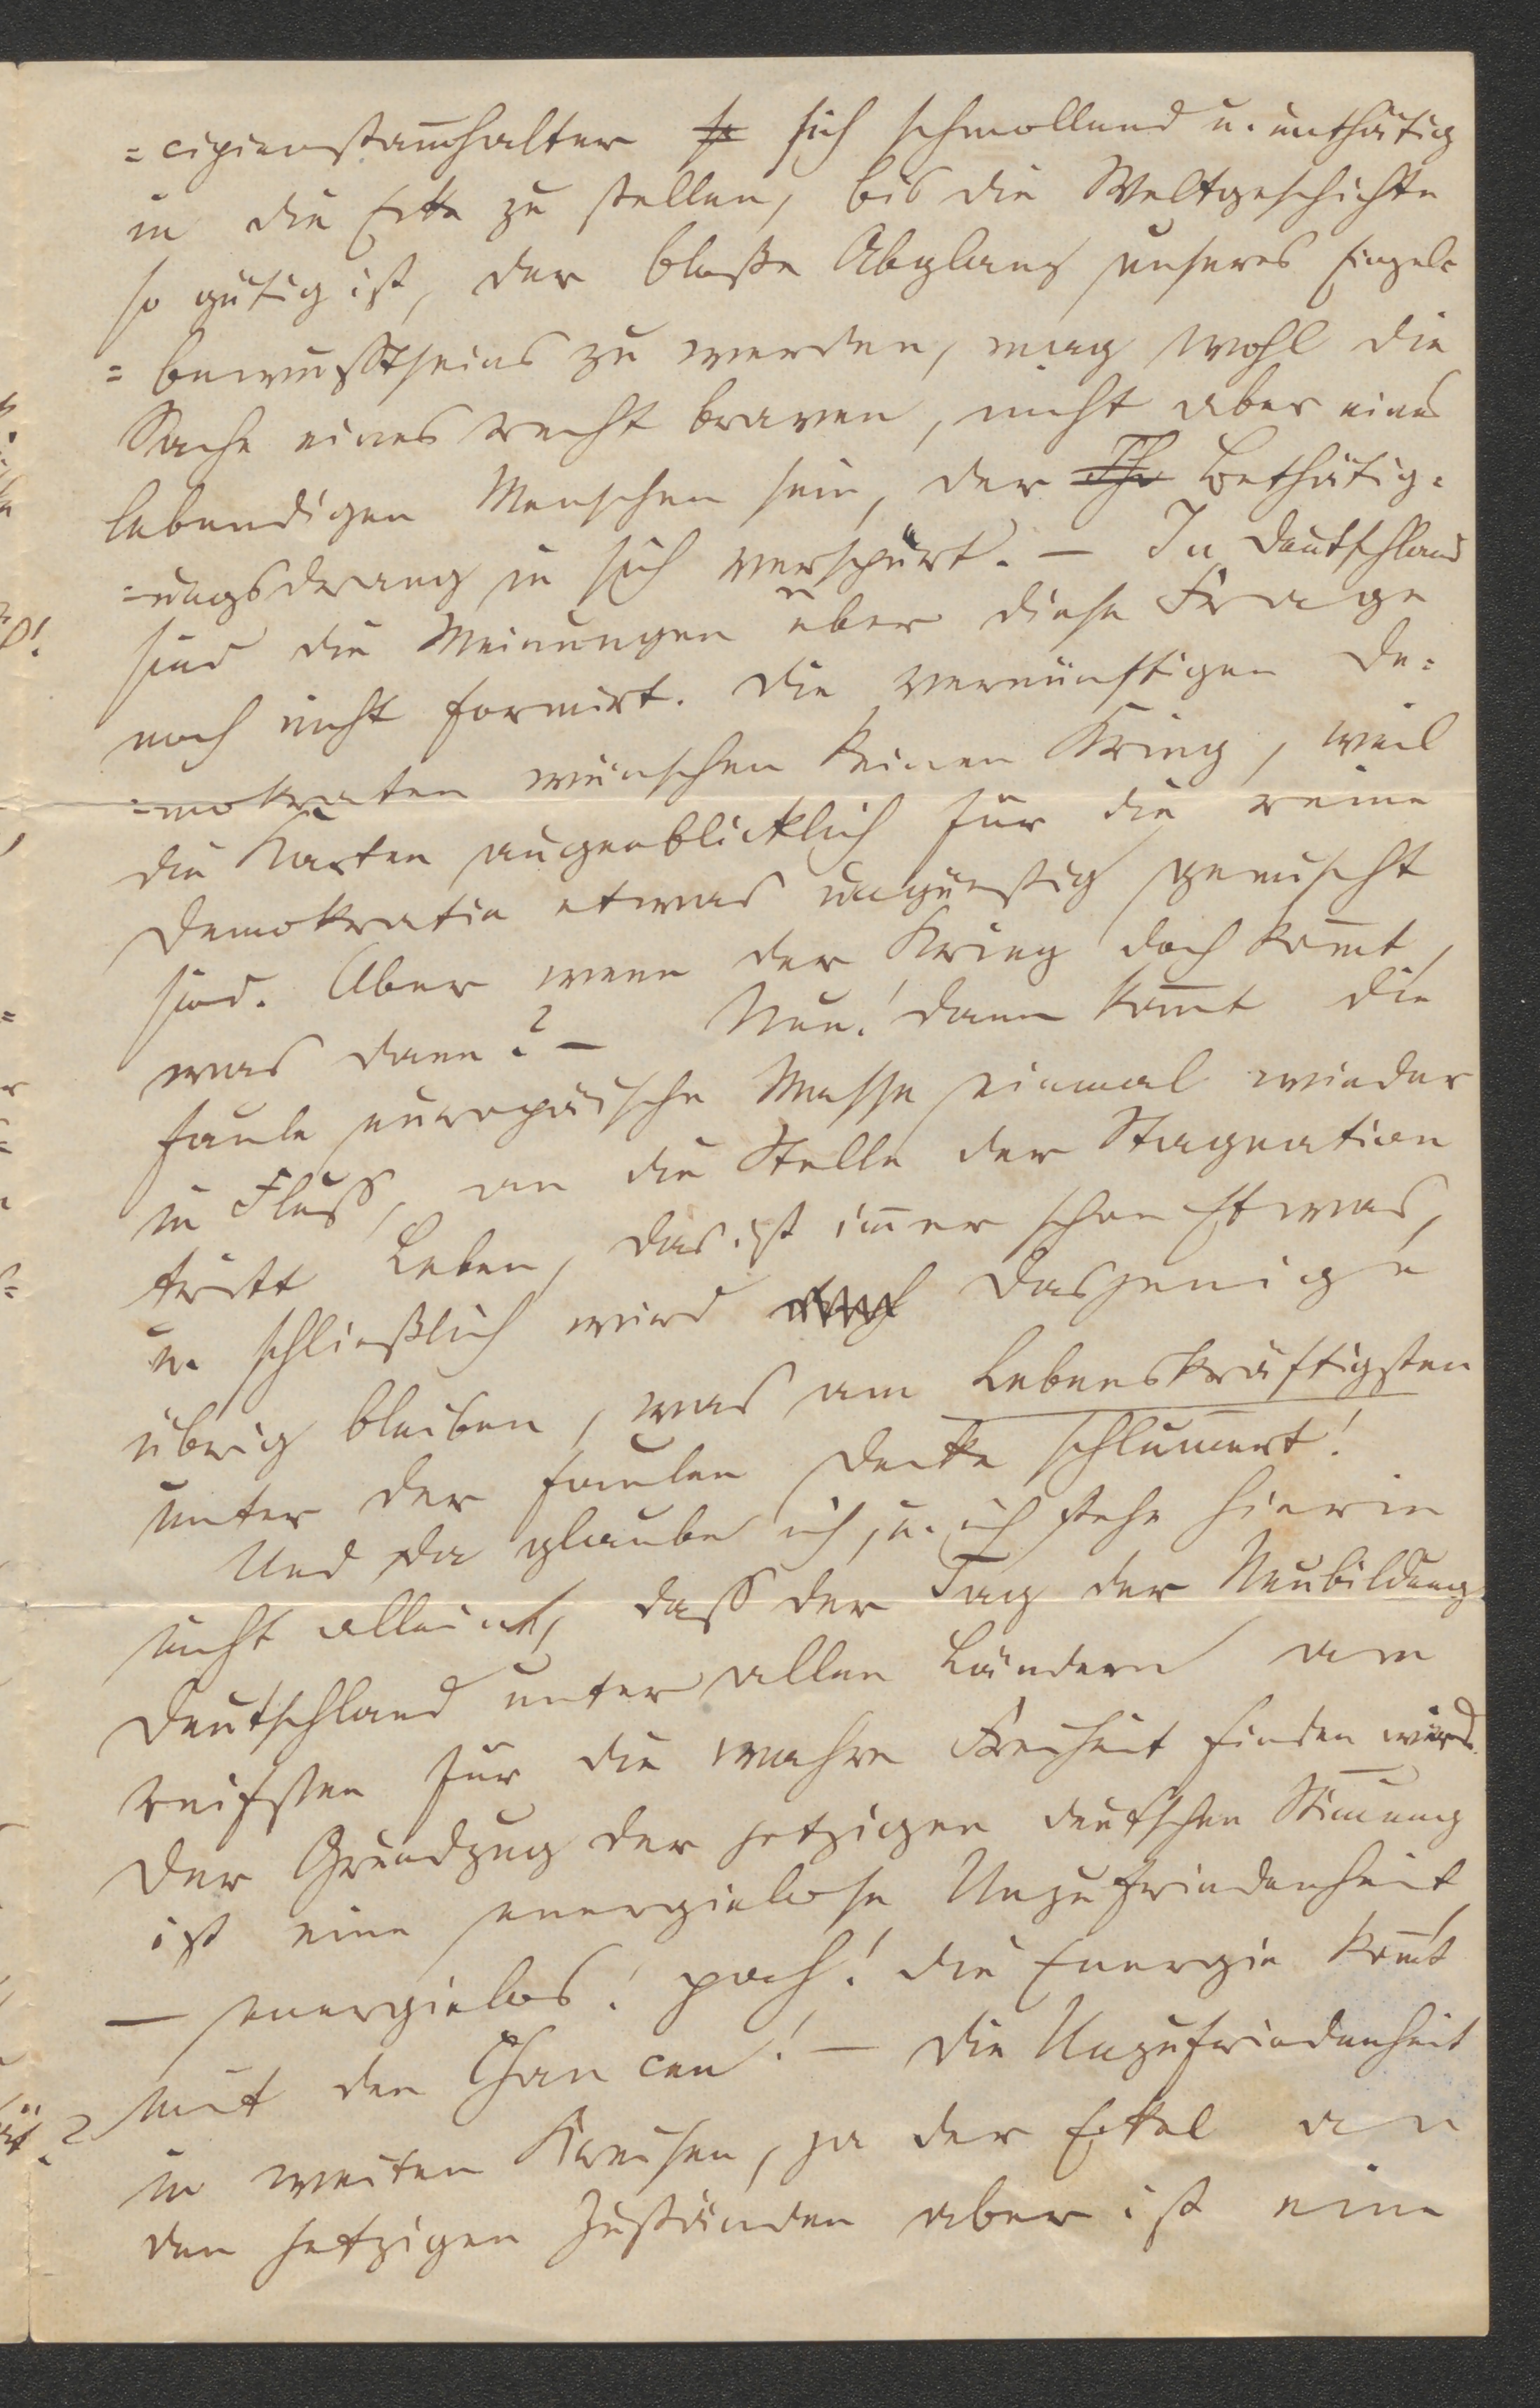 =cipienstam̅halter so sich schmollend u. unthätig
in die Ecke zu stellen, bis die Weltgeschichte
so gütig ist, der blaße Abglanz unseres Einzel=
=bewußtseins zu werden, mag wohl die
Sache eines recht braven, nicht aber eines
lebendigen Menschen sein, der Th Bethätig=
=ungsdrang in sich verspürt. — In Deutschland
sind die Meinungen über diese Frage
noch nicht formirt. Die vernünftigen De=
=mokraten wünschen keinen Krieg, weil
die Karten augenblicklich für die reine
Demokratie etwas ungünstig gemischt
sind. Aber wenn der Krieg doch kom̅t,
was dann? — Nun! dann kom̅t die
faule europäische Masse einmal wieder
in Fluss, an die Stelle der Stagnation
tritt Leben, das ist im̅er schon Etwas,
u. schließlich wird dasjenige
übrig bleiben, was am Lebenskräftigsten
unter der faulen Decke schlum̅ert!
Und da glaube ich, u. ich stehe hierin
nicht allein, dass der Tag der Neubildung
Deutschland unter allen Ländern am
reifsten für die wahre Freiheit finden wird.
Der Grundzug der jetzigen deutschen Stim̅ung
ist eine energielose Unzufriedenheit,
— energielos! pach! die Energie kom̅t
mit den Chancen! — Die Unzufriedenheit
in weiten Kreisen, ja der Ekel an
den jetzigen Zuständen aber ist eine